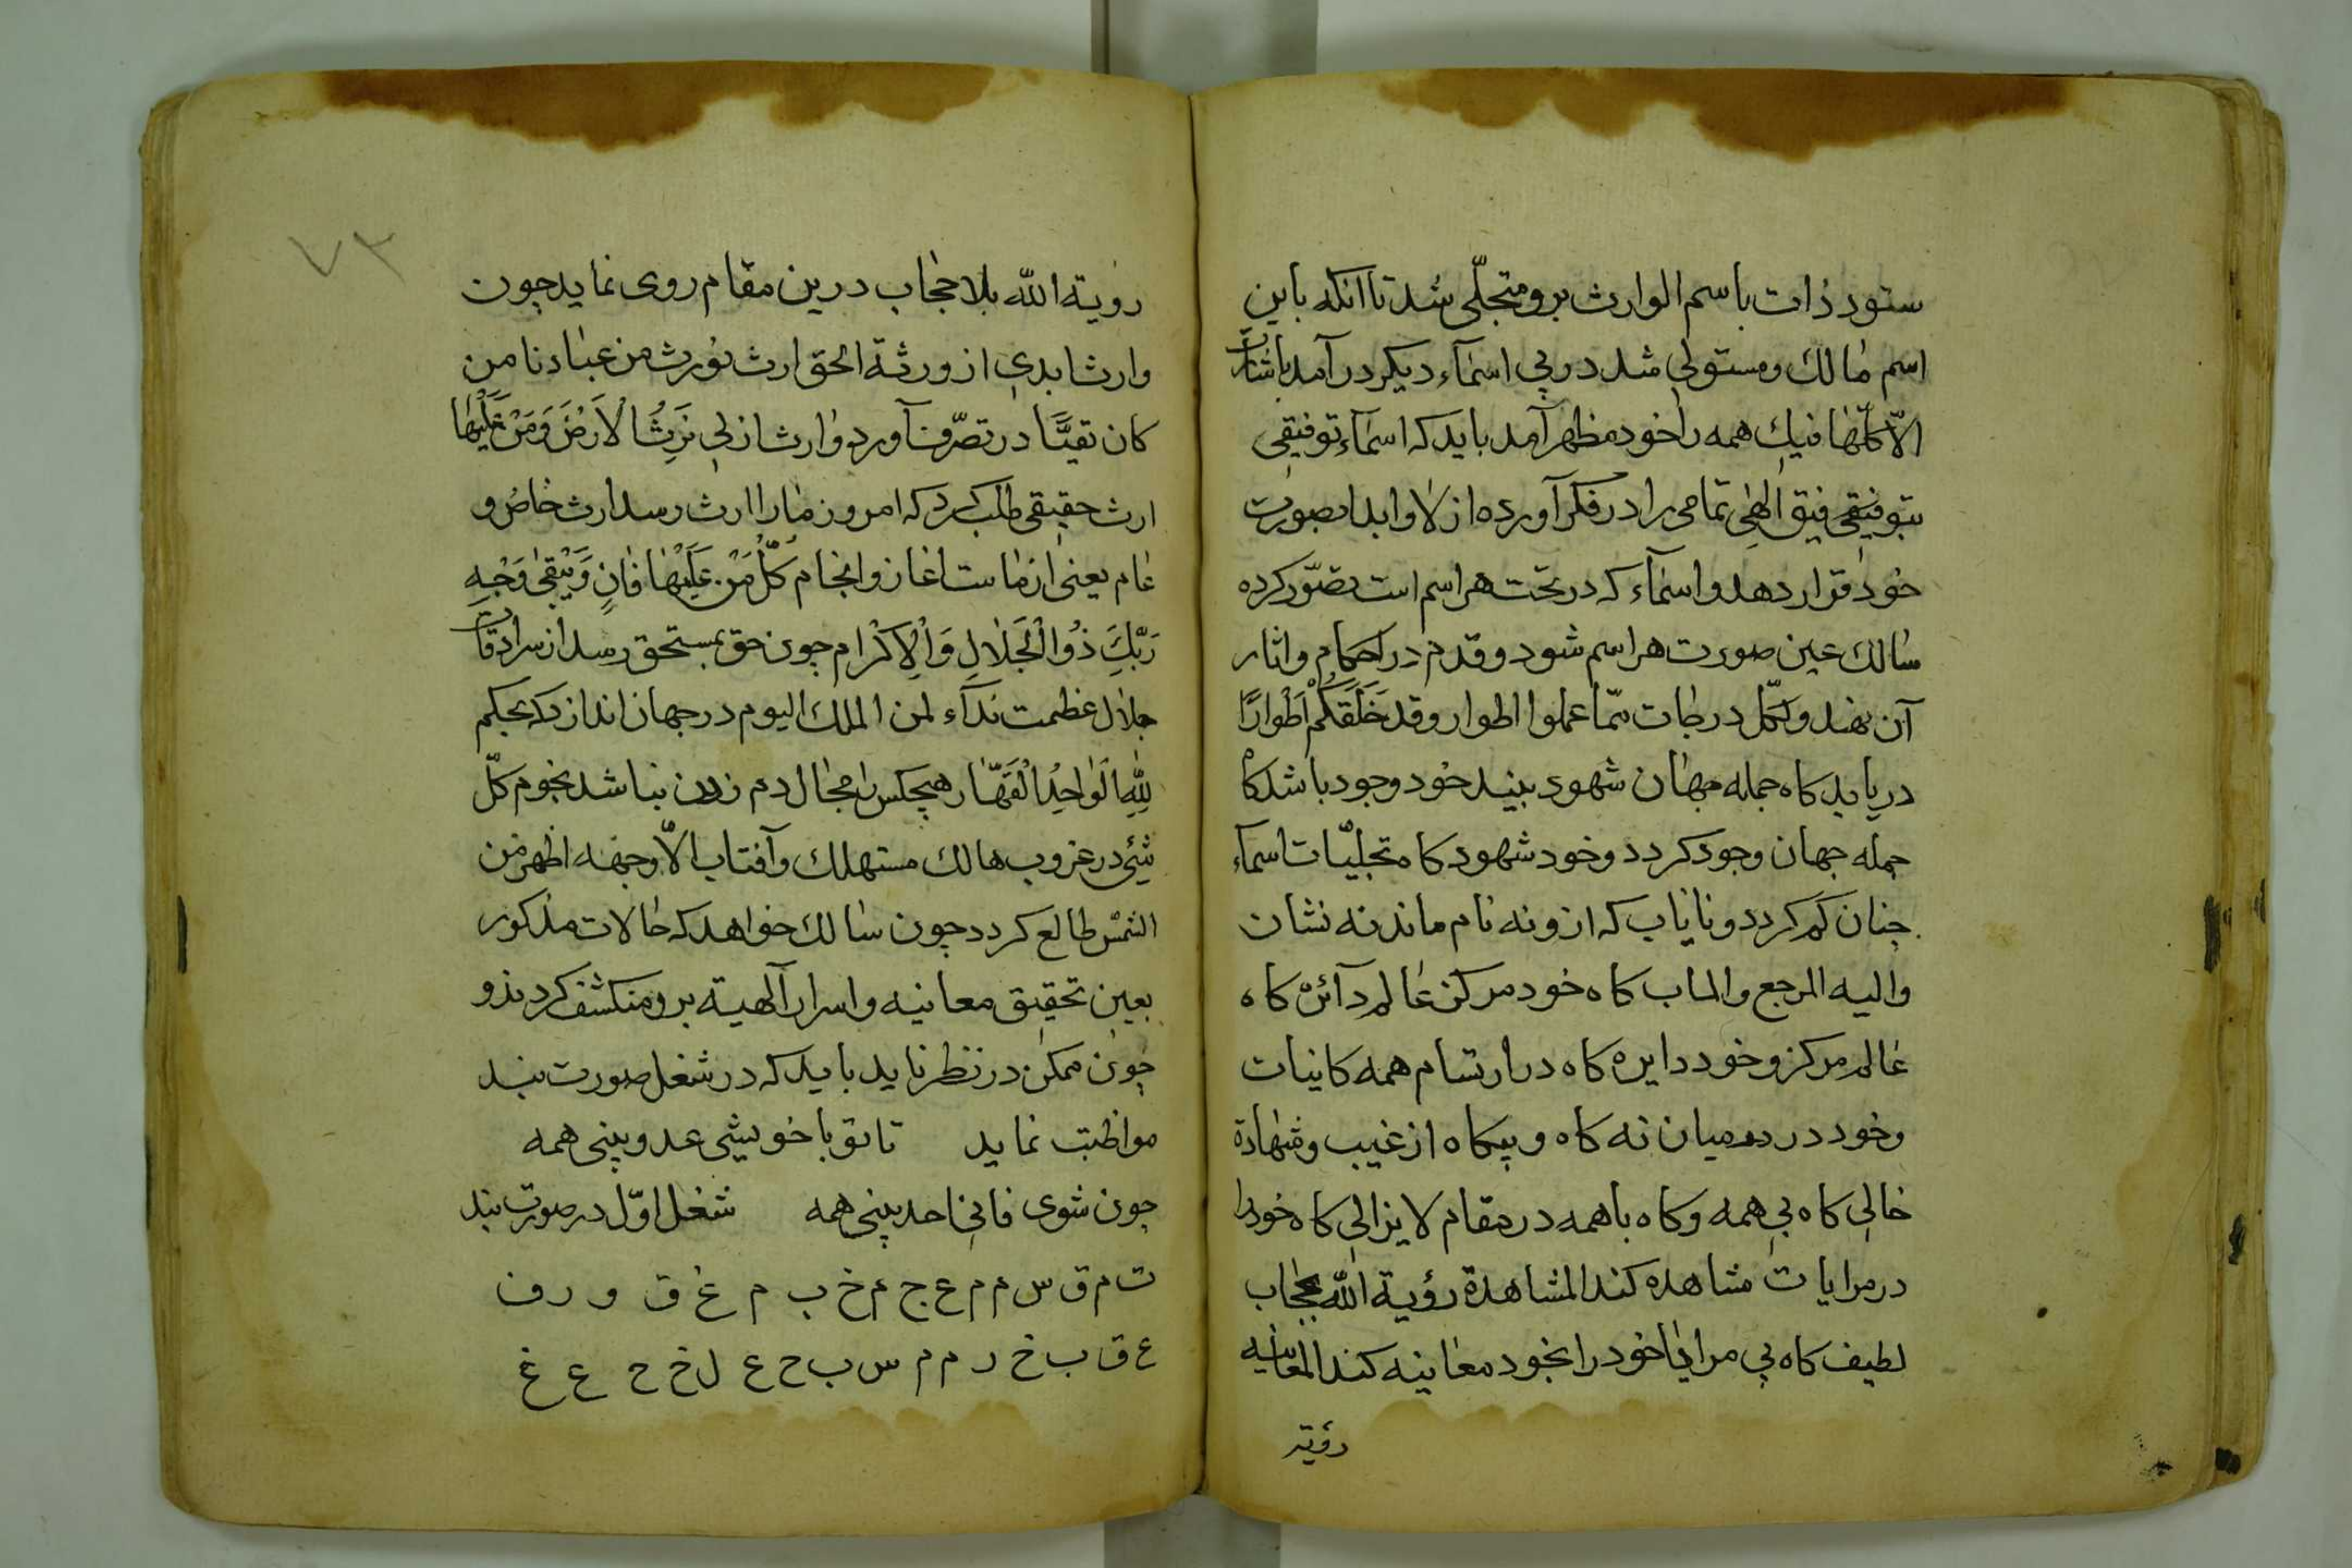 ستود ذات باسم الوارث برو متجلّی شد تا انکه باین
اسم مالك ومستولی شد در پی اسمآء دیکر درآمد باشارت
الاّ کلّها فیك همه را خود مظهر آمد باید که اسمآء توفیقی
بتوفیقِ فیق الٰهی تمامی را در فکر آورده ازلا وابدا بصورت
خود قرار دهد واسمآء که در تحت هر اسم است تصوّر کرده
سالك عین صورت هر اسم شود وقدم در احکام واثار
آن نهند ولکلّ درجات ممّا عملوا اطوار وقد خَلَقَکُمْ اَطْوارًا
دریابد کاه جمله جهان شهود بیند خود وجود باشد کاه
جمله جهان وجود کردد وخود شهود کاه تجلیّات اسمآء
چنان کم کردد ونایاب که ازو نه نام ماند نه نشان
والیه المرجع والماب کاه خود مرکز عالم دآئره کاه
عالم مرکز وخود دایره کاه در ارتسام همه کاینات
وخود در میان نه کاه وبیکاه از غیب وشهادة
خالی کاه بی همه وکاه باهمه در مقام لایزالی کاه خود را
در مرایات مشاهده کند المشاهدة رؤیة الله بحجاب
لطیف کاه بی مرایا خود را بخود معاینه کند المعاینه
رؤیة
٧٣
رؤیة الله بلا حجاب درین مقام روی نماید چون
وارث ابدی از ورثة الحق ارث نورث من عبادنا من
کان تقیًّا در تصرّف آورد وارث ازلی نَرِثُ الْاَرْضَ وَمَنْ عَلَیْهَا
ارث حقیقی طلب کرد که امروز مارا ارث رسد ارث خاص و
عام یعنی از ماست اغاز وانجام کُلُّ مَنْ عَلَیْهَا فَانٍ وَیَبْقیٰ وَجْهِ
رَبِّكَ ذُوالْجَلَالِ وَالْاِکْرَام چون حق بمستحق رسد از سرادقات
جلال عظمت ندآء لمن الملك الیوم در جهان اندازد که بحکم
لِلّٰهِ الْوَاحِدِ الْقَهَّار هیچکس را مجال دم زدن نباشد نجوم کلّ
شیٔی در غروب هالك مستهلك وآفتاب الاّ وجهه اظهر من
الشمس طالع کردد چون سالك خواهد که حالات مذکور
بعین تحقیق معاینه واسرار آلهیة برو منکشف کردند و
چون ممکن در نظر ناید باید که در شغل صورت بند
مواظبت نماید تا تو با خویشی عدد بینی همه
چون شوی فانی احد بینی همه شغل اوّل در صورت بند
ت م ق س م م ع ج م خ ب م غ ق و ر ف
ع ق ب خ ر م م س ب ح ع ل خ ح ع غ